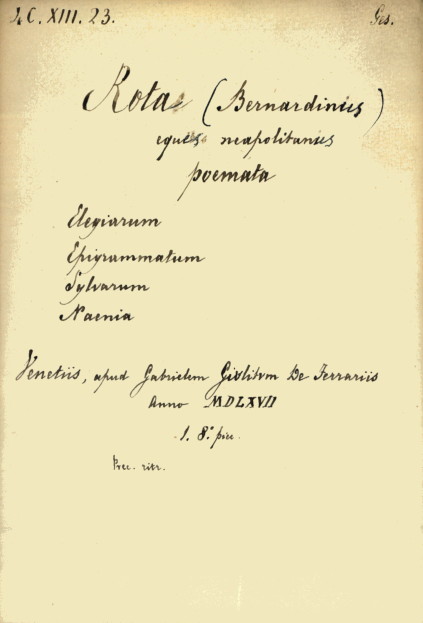 4C. XIII. 23. Ges.
Rota (Bernardinus)
eques neapolitanus
poemata
Elegiarum
Epigrammatum
Sylvarum
Naenia
Venetiis, apud Gabrielem Giolitvm De Ferrariis
Anno MDLXVII
1. 8.º picc.
Prec. ritr.